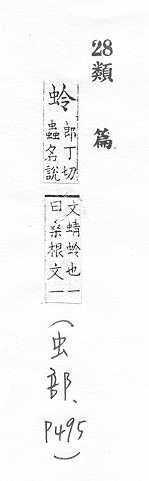 28類篇
蛉 郎丁切
蟲名說
文蜻蛉也一
曰桑根文一
(虫部、P495)